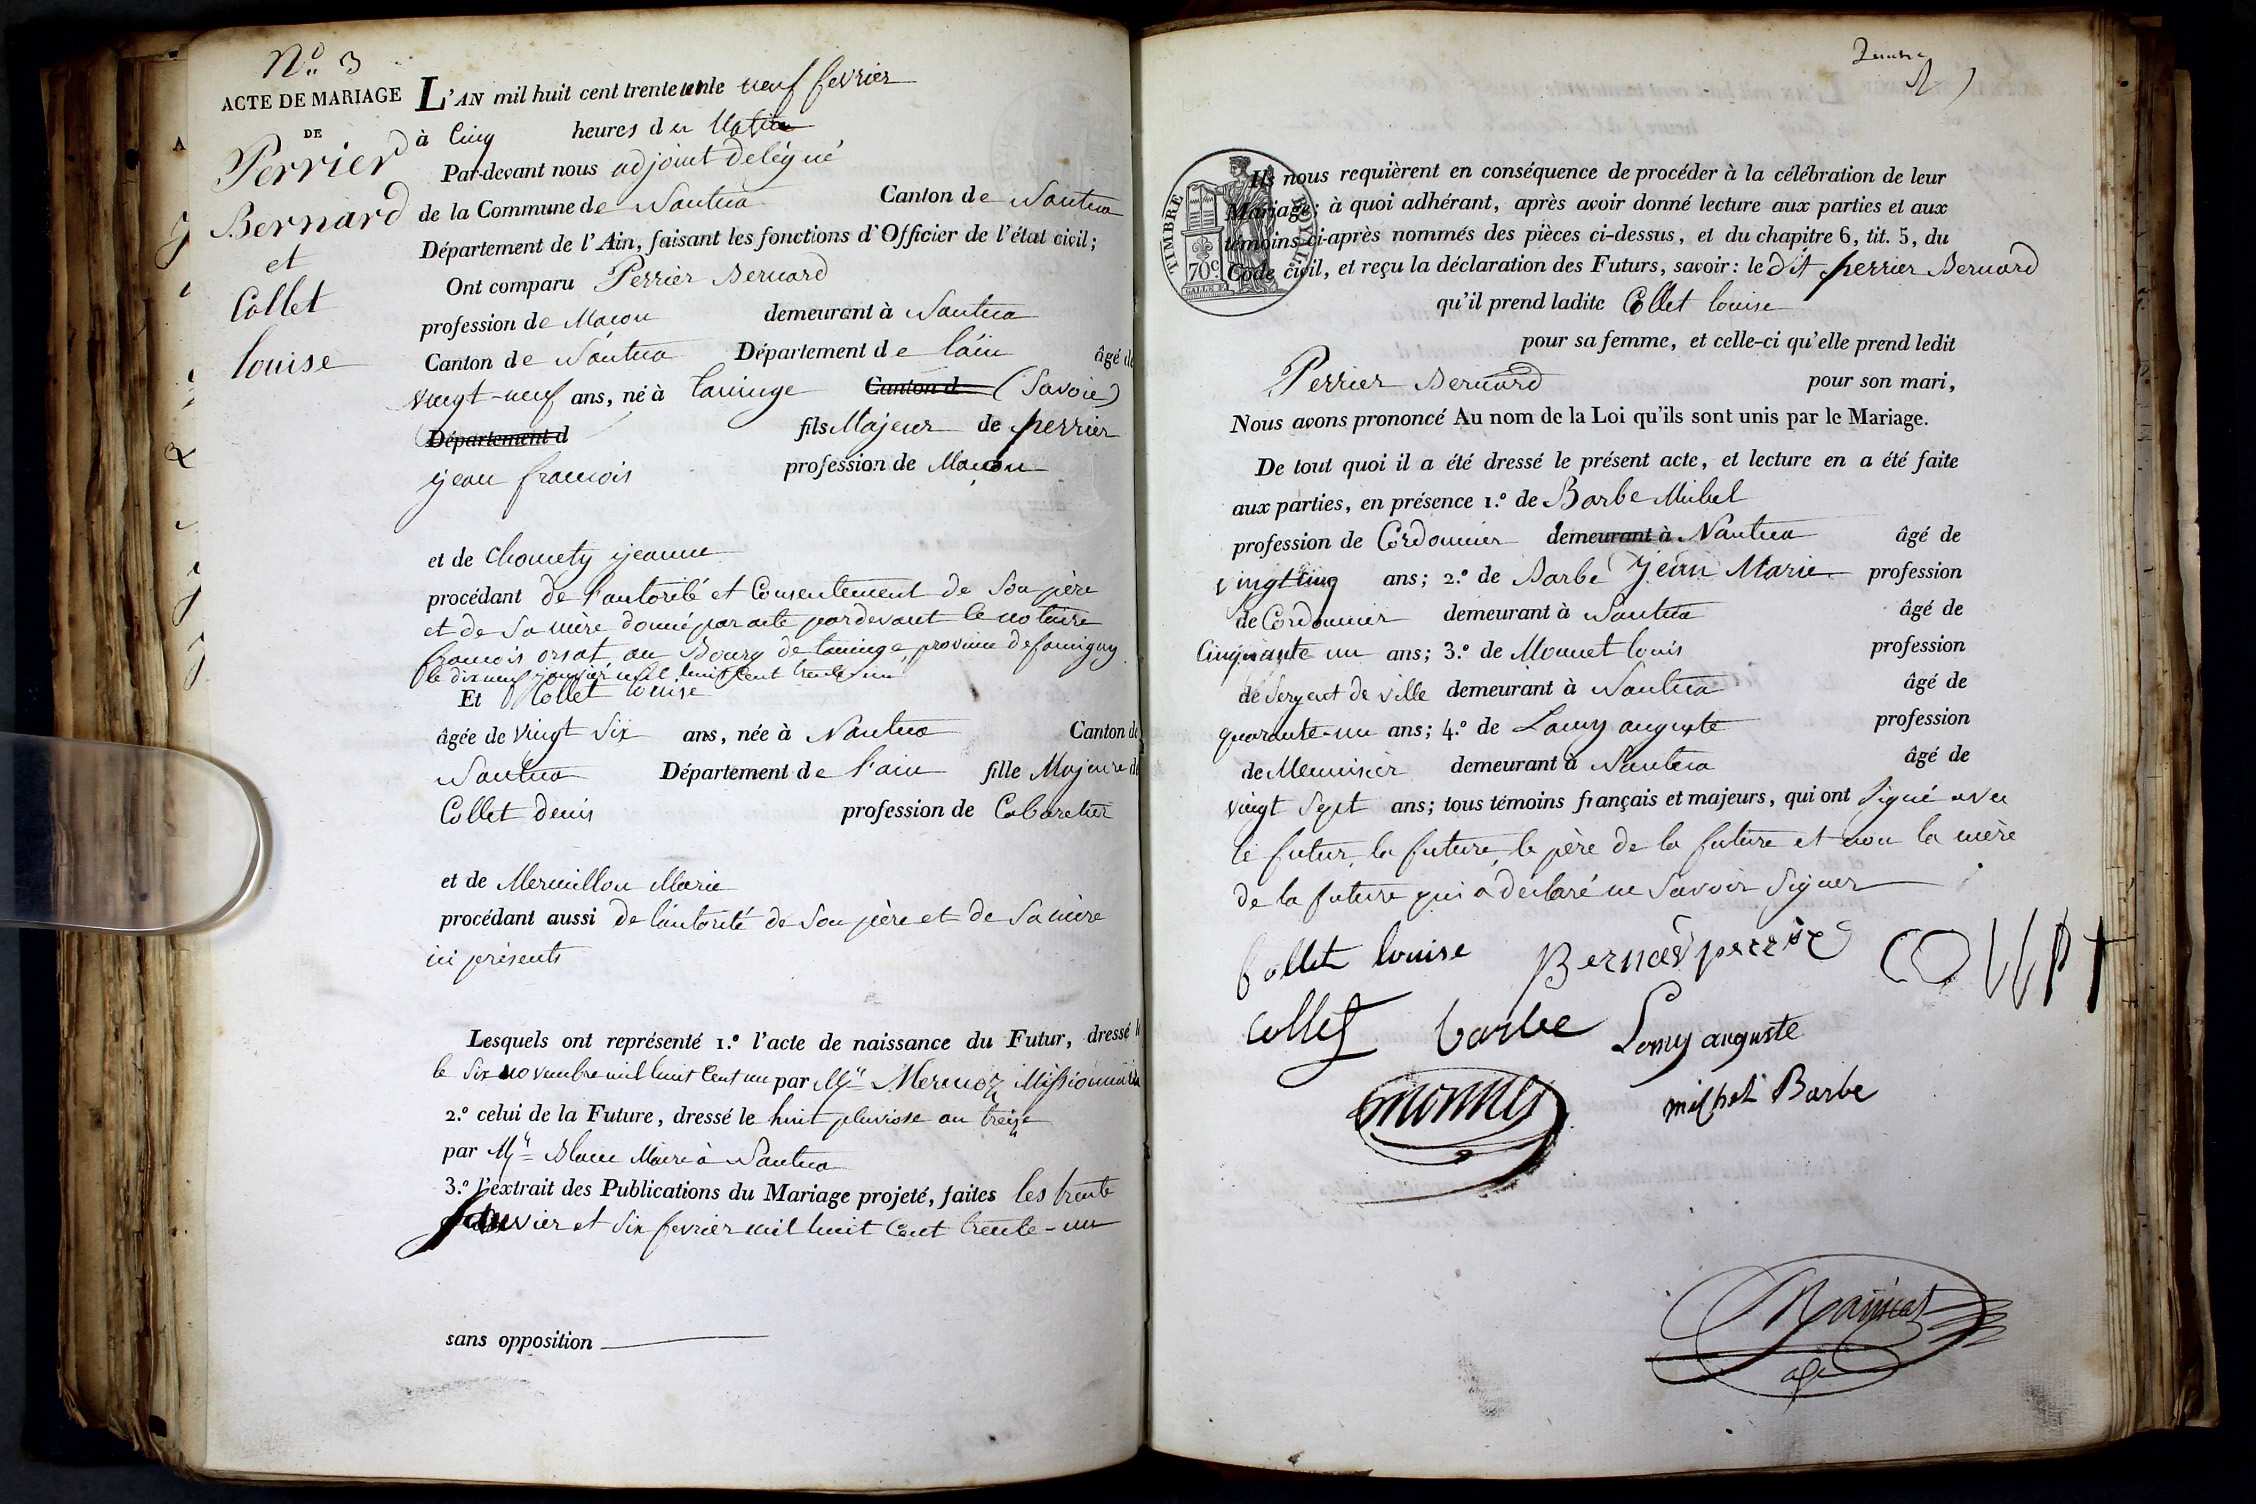 N.° 3
ACTE DE MARIAGE
DE
Perrier
Bernard
et
Collet
louise
L'AN mil huit cent trente neuf fevrier
à Cinq heures du Matin
Par-devant nous adjoint delégué
de la Commune de Nantua Canton de Nantua
Département de l'Ain, faisant les fonctions d'Officier de l'état civil;
Ont comparu Perrier Bernard
profession de Macon demeurant à Nantua
Canton de Nantua Département de l'ain âgé de
vingt-neuf ans, né à taninge Canton d (Savoie)
Département d fils Majeur de perrier
jean francois profession de Macon
et de Chomety jeanne
procédant de l'autorité et Consentement de Son père
et de Sa mère donné par acte pardevant le notaire
francois orsat au Bourg de taninge, province de faucigny
le dix neuf janvier mil huit Cent trente un
Et Collet louise
âgée de vingt Six ans, née à Nantua Canton de
Nantua Département de l'ain fille Majeure de
Collet denis profession de Cabaretier
et de Mermillon Marie
procédant aussi de l'autorité de Son père et de Sa mère
ici présents
Lesquels ont représenté 1.° l'acte de naissance du Futur, dressé
le Six novembre mil huit Cent un par Mr Mermoz Missionnaire
2.° celui de la Future, dressé le huit pluviose an treize
par Mr Blanc Maire à Nantua
3.° l'extrait des Publications du Mariage projeté, faites les trente
janvier et Six fevrier mil huit Cent trente-un
sans opposition
TIMBRE ROYAL
70c.
Ils nous requièrent en conséquence de procéder à la célébration de leur
Mariage; à quoi adhérant, après avoir donné lecture aux parties et aux
témoins ci-après nommés des pièces ci-dessus, et du chapitre 6, tit. 5, du
Code civil, et reçu la déclaration des Futurs, savoir: le dit perrier Bernard
qu'il prend ladite Collet louise
pour sa femme, et celle-ci qu'elle prend ledit
Perrier Bernard pour son mari,
Nous avons prononcé Au nom de la Loi qu'ils sont unis par le Mariage.
De tout quoi il a été dressé le présent acte, et lecture en a été faite
aux parties, en présence 1.° de Barbe Michel
profession de Cordonnier demeurant à Nantua âgé de
vingt cinq ans; 2.° de Barbe jean Marie profession
de Cordonnier demeurant à Nantua âgé de
Cinquante un ans; 3.° de Monnet louis profession
de Sergent de ville demeurant à Nantua âgé de
quarante-un ans; 4.° de Lamy auguste profession
de Menuisier demeurant à Nantua âgé de
vingt Sept ans; tous témoins français et majeurs, qui ont Signé avec
le futur, la future, le père de la future et non la mère
de la future qui a déclaré ne Savoir Signer
Collet louise Bernard perrier
Collet barbe Lamy auguste
monnet michel Barbe